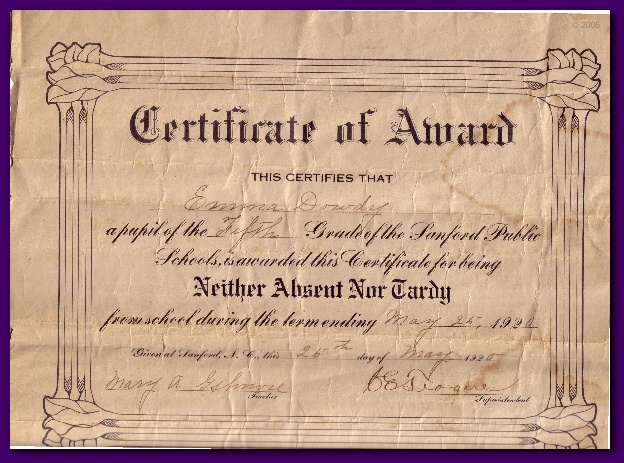 © 2005
Certificate of Award
THIS CERTIFIES THAT
Emma Dowdy
a pupil of the Fifth Grade of the Sanford Public
Schools, is awarded this Certificate for being
Neither Absent Nor Tardy
from school during the term ending May 25, 1920
Given at Sanford, N. C., this 25th day of May 1920
Mary A
Teacher
Superintendent